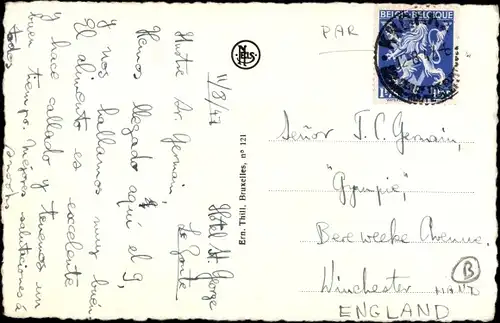 11/8/47
Hotel St. George
Le Zoute
Ilustre Sr. Germain,
Hemos llegado aquí el 9,
y nos hallamos muy bien
El alimento es excelente
y hace callado y tenemos un
buen tiempo. Mejores salutaciones à
todos
NELS
Ern. Thill, Bruxelles, nº 121
PAR
BELGIE-BELGIQUE
Señor J. C. Germain,
"Gympie,"
Bereweeke Avenue,
Winchester
HANTS
ENGLAND
B